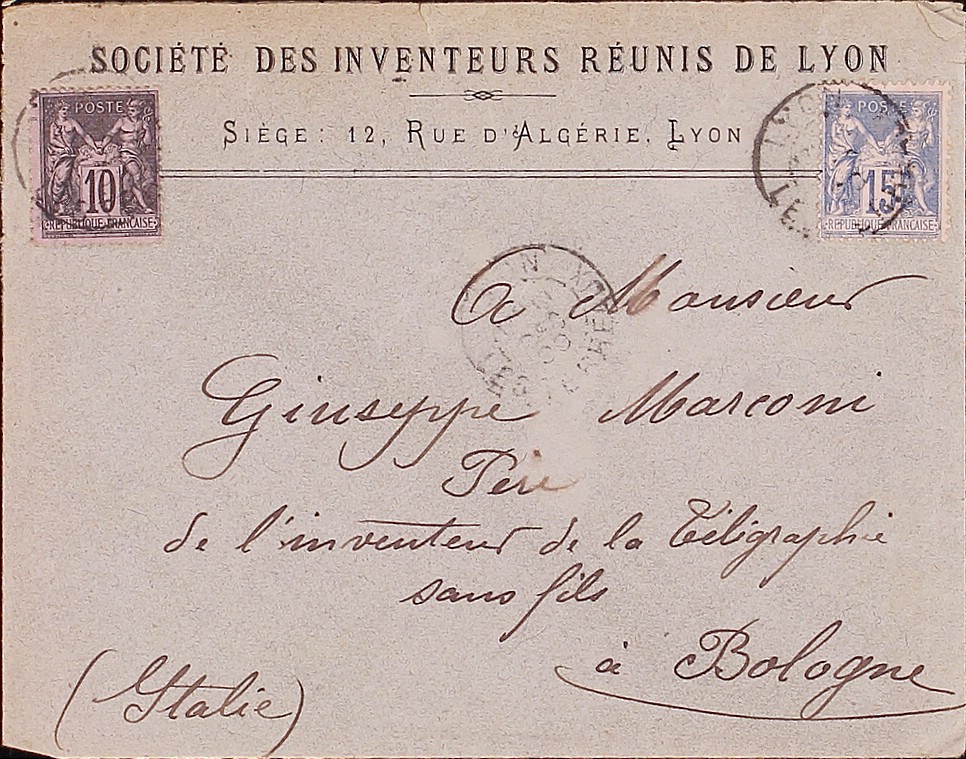 SOCIÉTÉ DES INVENTEURS RÉUNIS DE LYON
SIÈGE: 12, RUE D'ALGÉRIE, LYON
POSTE
10
RÉPUBLIQUE FRANÇAISE
LYON
POSTE
15
RÉPUBLIQUE FRANÇAISE
A Monsieur
Giuseppe Marconi
Père
de l'inventeur de la Téligraphie
sans fils
à Bologne
(Italie)